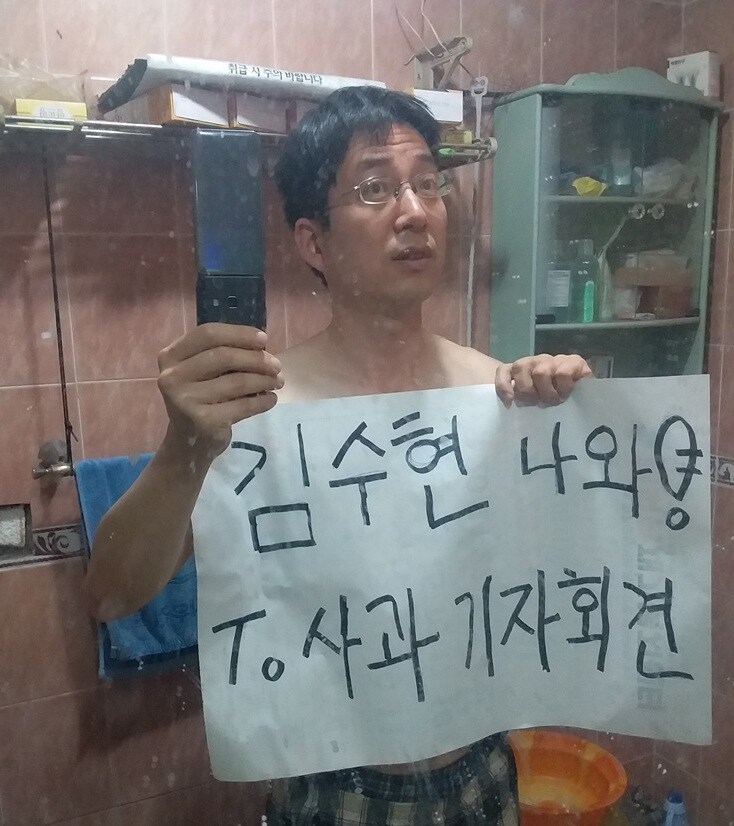 취급 시 주의 바랍니다
김수현 나와영
To 사과 기자회견